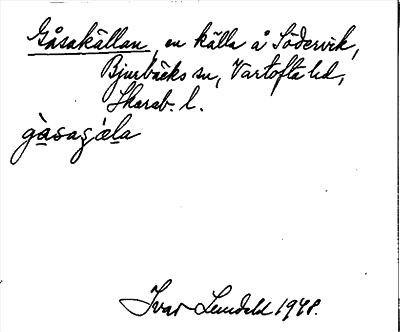 Gåsakällan, en källa å Södervik,
Bjurbäcks sn, Vartofta hd,
Skarab. l.
gàsaʒæla
Ivar Lundahl 1948.